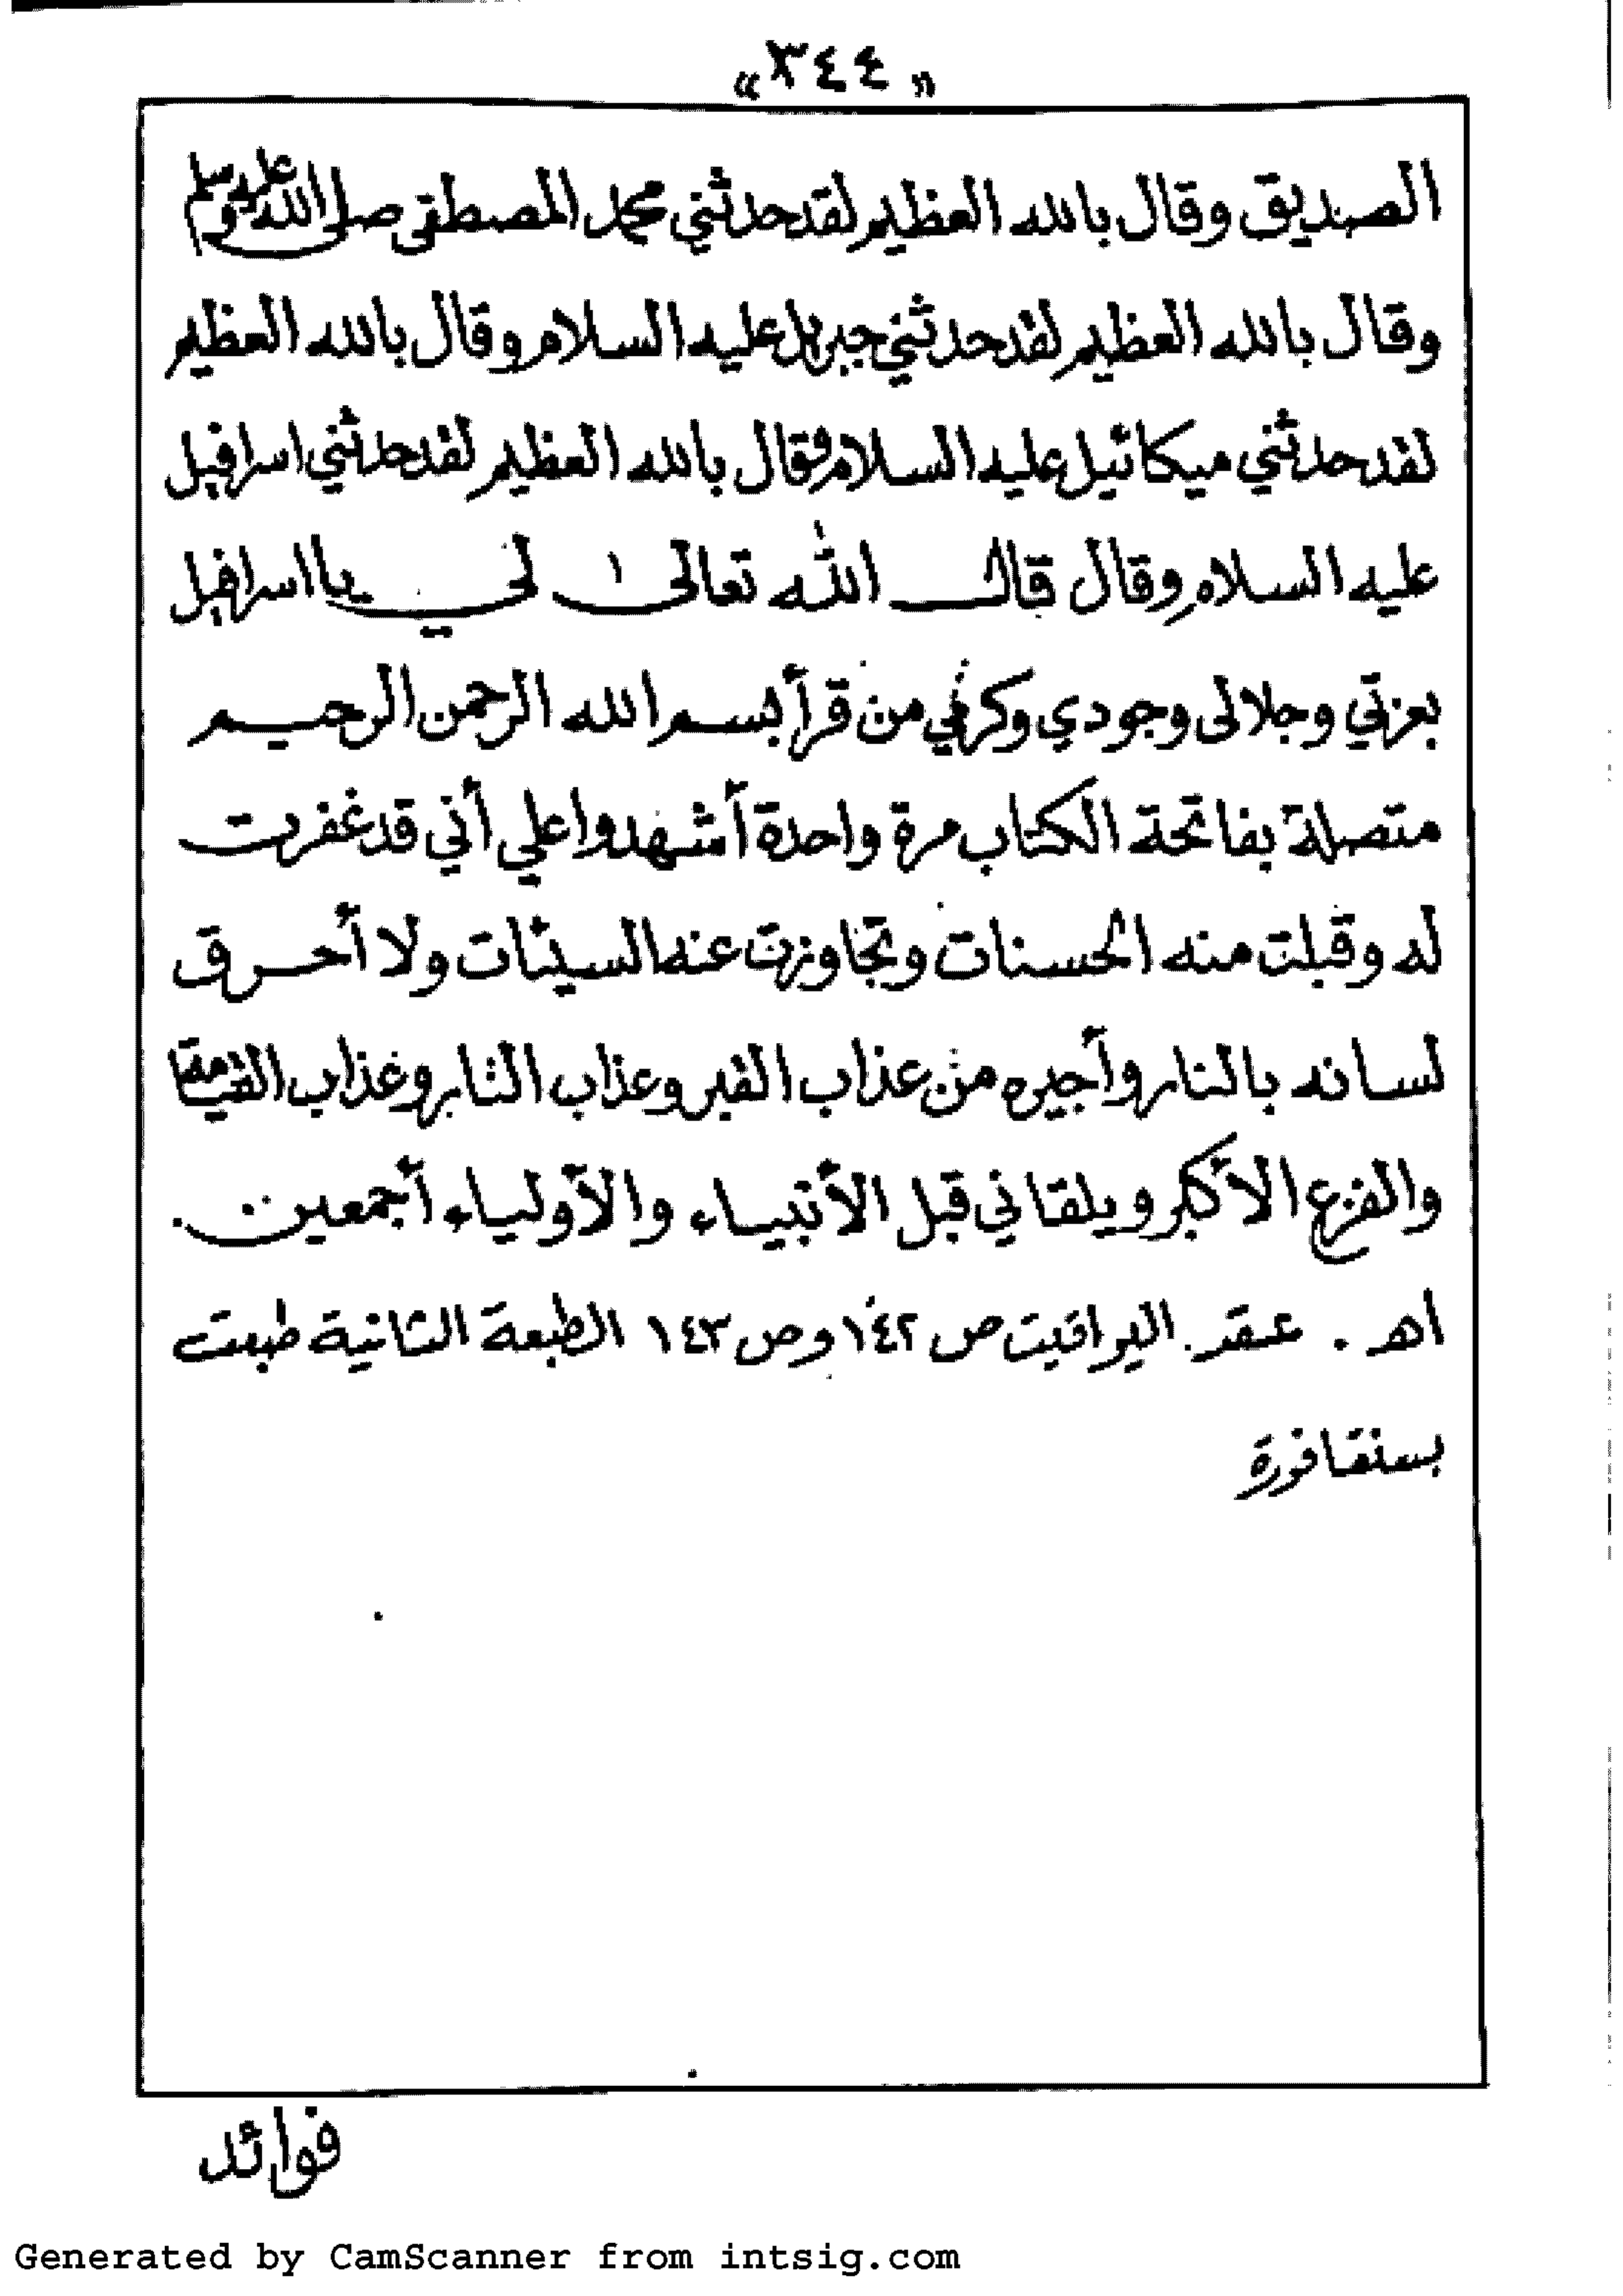 «٣٤٤»
الصديق وقال بالله العظيم لقد حدثني محمد المصطفى صلى الله عليه وسلم
وقال بالله العظيم لقد حدثني جبريل عليه السلام وقال بالله العظيم
لقد حدثني ميكائيل عليه السلام فقال بالله العظيم لقد حدثني اسرافيل
عليه السلام وقال قال الله تعالى لي يا اسرافيل
بعزتي وجلالى وجودي وكرمي من قرأ بسم الله الرحمن الرحيم
متصلة بفاتحة الكتاب مرة واحدة أشهدوا علي أني قد غفرت
له وقبلت منه الحسنات وتجاوزت عنه السيئات ولا أحرق
لسانه بالنار وأجيره من عذاب القبر وعذاب النار وعذاب القيامة
والفزع الأكبر ويلقاني قبل الأنبياء والأولياء أجمعين.
اهـ. عقد اليواقيت ص ١٤٢ وص ١٤٣ الطبعة الثانية طبعت
بسنقافورة
فوائد
Generated by CamScanner from intsig.com